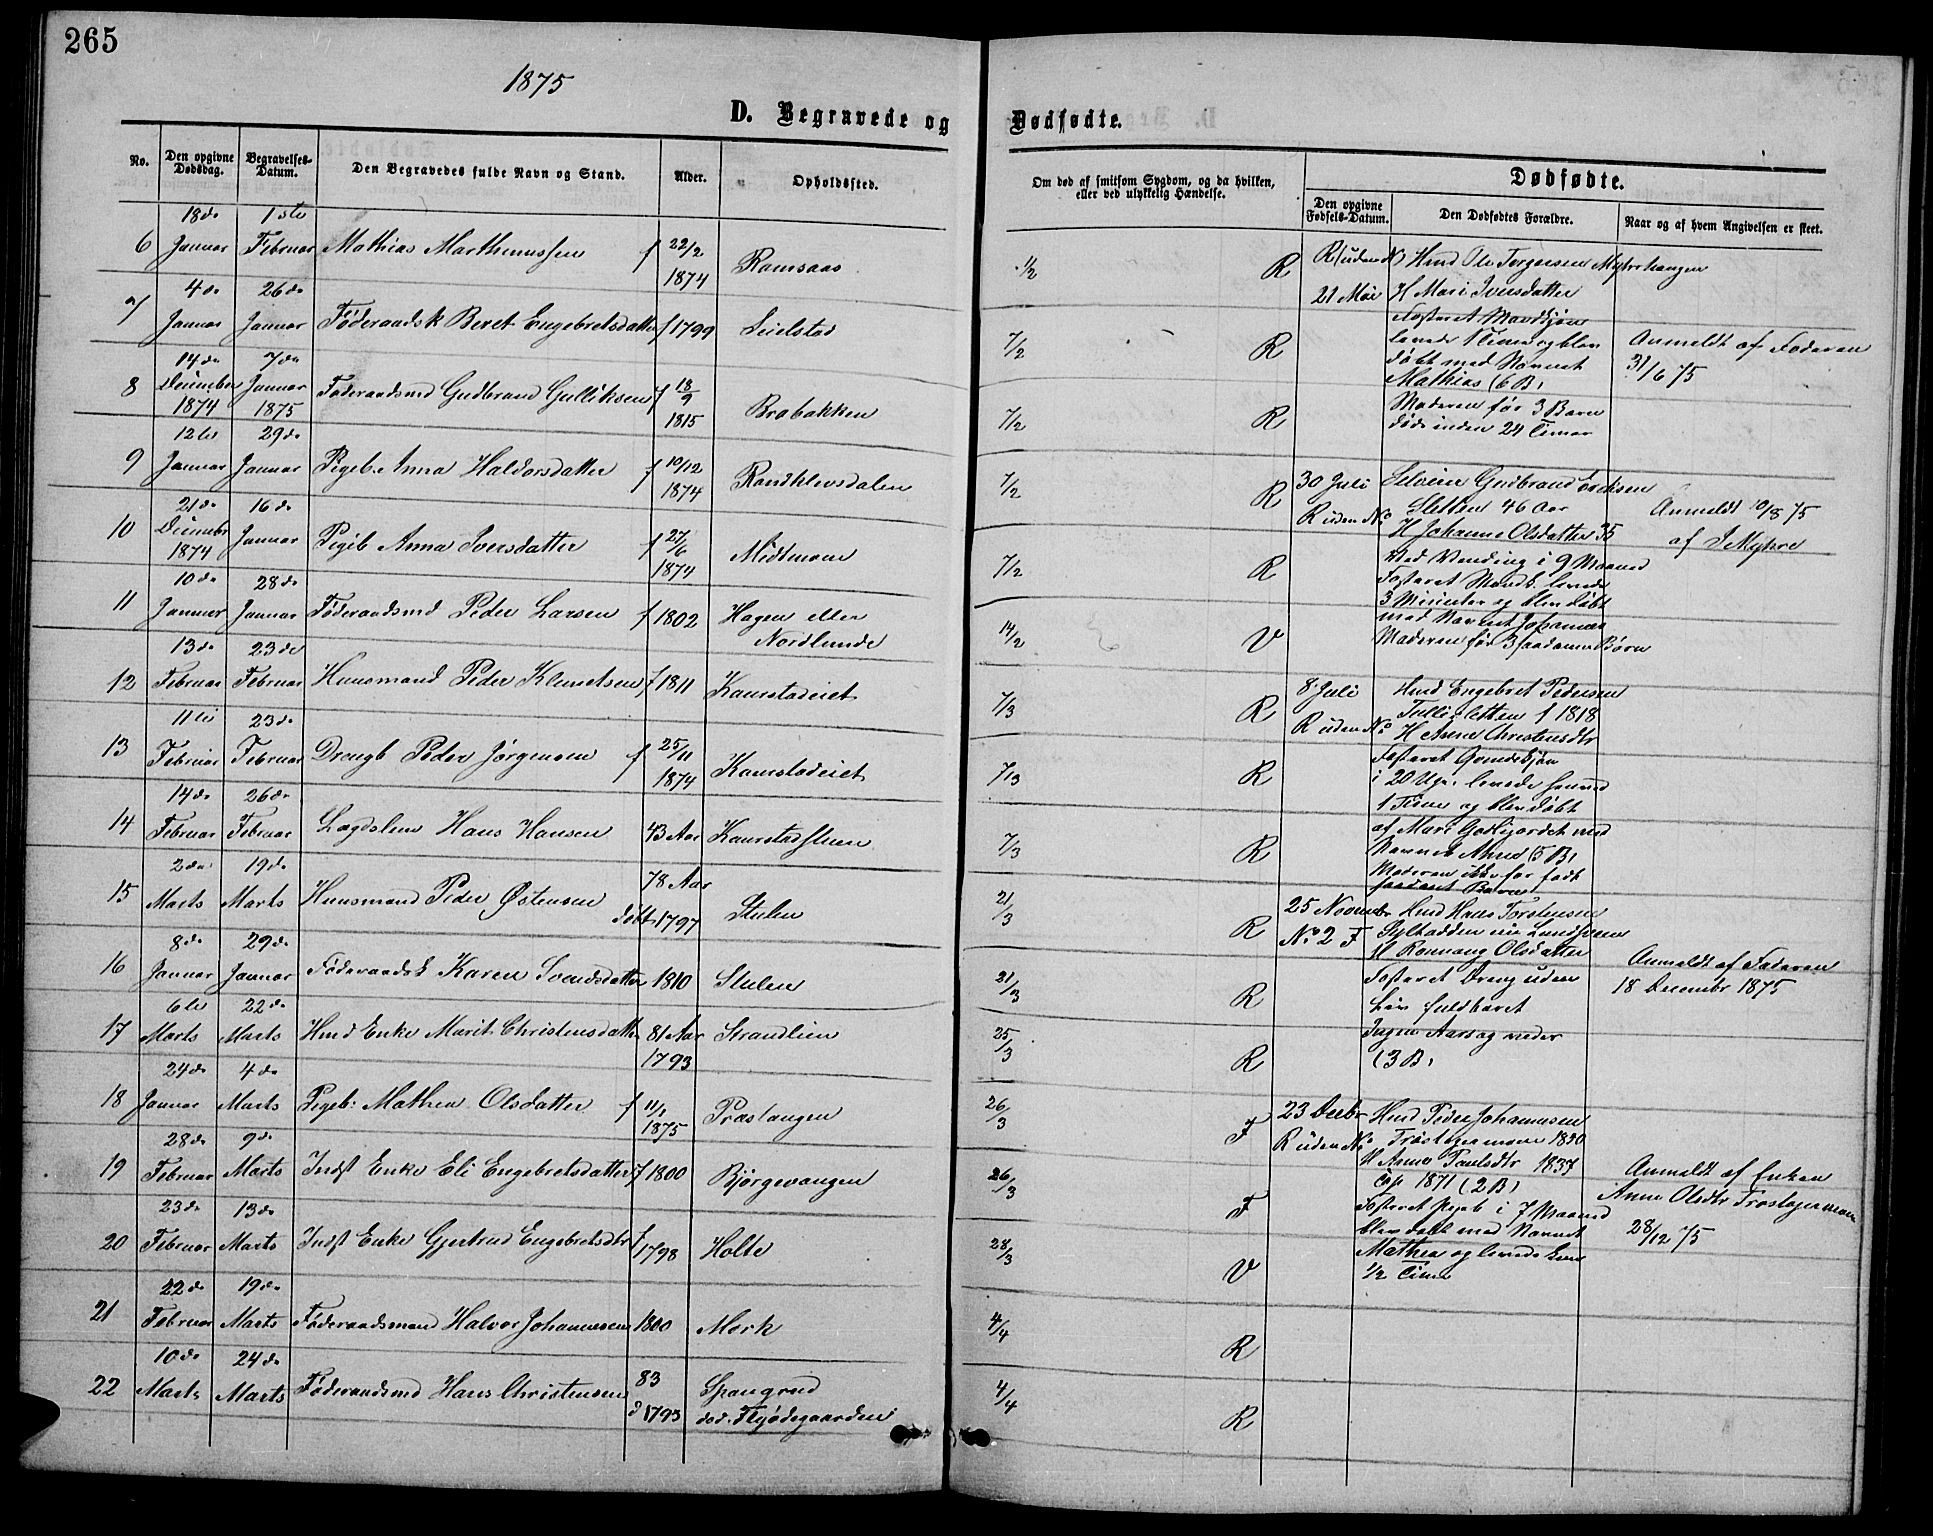 265
1875
D. Begravede og Dødfødte.
No. Den opgivne Dødsdag. Begravelses-Datum. Den Begravedes fulde Navn og Stand. Alder. Opholdssted.
18de 1ste
6 Januar Februar Mathias Marthinussen f 22/2 1874 Ramsaas
4de 26de
7 Januar Januar Føderaadsk Beret Engebretsdatter f 1799
14de 7de
8 December 1874 Januar 1875 Føderaadsmd Gudbrand Gulliksen f 18/9 1815 Brobakken
12te 29de
9 Januar Januar Pigeb. Anna Haldorsdatter f 10/12 1874
21de 16de
10 December 1874 Januar Pigeb Anna Iversdatter f 27/6 1874 Midtmoen
10de 28de
11 Januar Januar Føderaadsmd Peder Larsen f 1802 Hagen eller
Nordlunde
13de 23de
12 Februar Februar Huusmand Peder Klemetsen f 1811 Kamstadeiet
11te 23de
13 Februar Februar Drengb Peder Jørgensen f 25/11 1874 Kamstadeiet
14de 26de
14 Februar Februar Lægdslem Hans Hansen 43 Aar
2den 19de
15 Marts Marts Huusmand Peder Østensen 78 Aar døbt 1797 Stulen
8de 29de
16 Januar Januar Føderaadsk Karen Svendsdatter 1810 Stulen
6te 22de
17 Marts Marts Hmd Enke Marit Christensdatter 81 Aar 1793 Strandlien
24de 4de
18 Januar Marts Pigeb. Mathea Olsdatter f 11/1 1875 Præstangen
28de 9de
19 Februar Marts Indst Enke Eli Engebretsdatter f 1800 Bjørgevangen
23de 13de
20 Februar Marts Indst Enke Gjertrud Engebretsdtr f 1798 Holte
22de 19de
21 Februar Marts Føderaadsmand Halvor Johannesen 1800 Mork
10de 24de
22 Marts Marts Føderaadsmd Hans Christensen 83 d 1793 Spangrud
Flyødegaarden
Om død af smitsom Sygdom, og da hvilken, eller ved ulykkelig Hændelse.
Dødfødte.
Den opgivne Fødsels-Datum. Den Dødfødtes Forældre. Naar og af hvem Angivelsen er skeet.
1/2 R
7/2 R
7/2 R
7/2 R
7/2 R
14/2 V
7/3 R
7/3 R
7/3 R
21/3 R
21/3 R
25/3 R
26/3 F
26/3 F
28/3 V
4/4 R
4/4 R
R (uden No) Hmd Ole Torgersen Myhrehaugen
21 Mai H Mari Iversdatter
Fosteret Mandkjøn
levede 1 Time og blev
døbt med Navnet
Mathias (6 B)
Moderen før 3 Børn
døde inden 24 Timer
Anmeldt af Faderen
31/6 75
30 Juli Gudbrand Ericksen
R uden No Sletten 46 Aar
H Johanne Olsdatter 35
Ved Vending i 9 Maaned
Fosteret Mandk. levede
3 Minuter og blev døbt
med Navnet Johannes
Moderen før 3 saadanne Børn
Anmeldt 10/8 75
af J Myhre
8 Juli Hmd Engebret Pedersen
R uden No f 1818
H Anne Christensdtr
Fosteret Qvindekjøn
i 20 Uge. levede
1 Time og blev døbt
af Mari med
Navnet (5 B)
Moderen ikke før født
saadant Barn
25 Novembr Hmd Hans Torstensen
No 2 F
H Olsdatter
Fosteret Dreng uden
Liv fuldbaaret
Ingen Aarsag
(3 B)
Anmeldt af Faderen
18 December 1875
23 Decbr Hmd Peder Johannesen
R uden No 1830
H Anne Paulsdtr 1837
Cop 1871 (2 B)
Fosteret Pigeb i 7 Maaned
blev døbt med Navnet
Mathea og levede kun
1/2 Time
Anmeldt af Enken
Anne Olsdtr
28/12 75